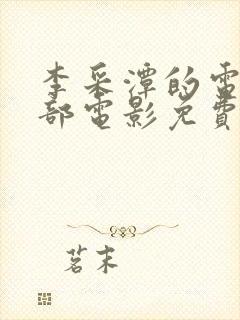 李采潭的電
部電影免費
茗末